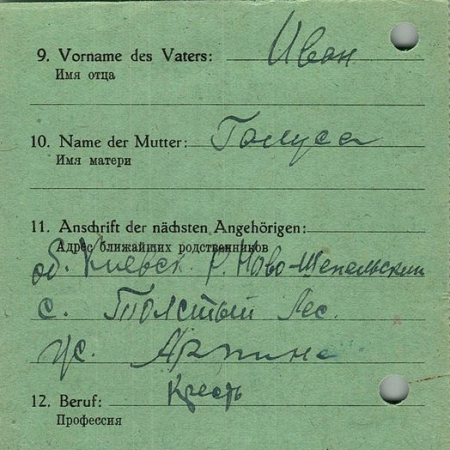 9. Vorname des Vaters: Иван
Имя отца
10. Name der Mutter: Голуса
Имя матери
11. Anschrift der nächsten Angehörigen:
Адрес ближайших родственников
об. Киевск. р. Ново-Шепельский
с. Толстый Лес.
12. Beruf: Кресть
Профессия